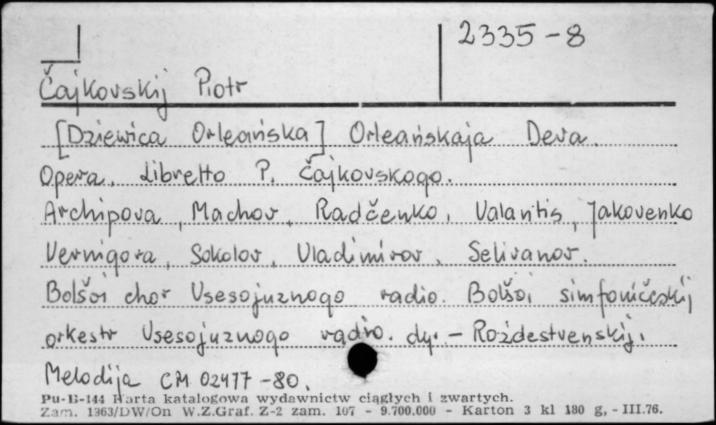 2335-8
Čajkovskij Piotr
[Dziewica Orleańska] Orleańskaja Deva.
Opera. Libretto P. Čajkovskogo.
Archipova, Machov, Radčenko, Valantis, Jakovenko
Vernigora, Sokolov, Vladimirov, Selivanov.
Bolšoi chor Vsesojuznogo radio. Bolšoi simfoničeskij
orkestr Vsesojuznogo radio. dyr. - Roždestvenskij.
Melodija CM 02477-80.
Pu-B-144 Karta katalogowa wydawnictw ciągłych i zwartych.
Zam. 1363/DW/On W.Z.Graf. Z-2 zam. 107 - 9.700.000 - Karton 3 kl 180 g, - III.76.